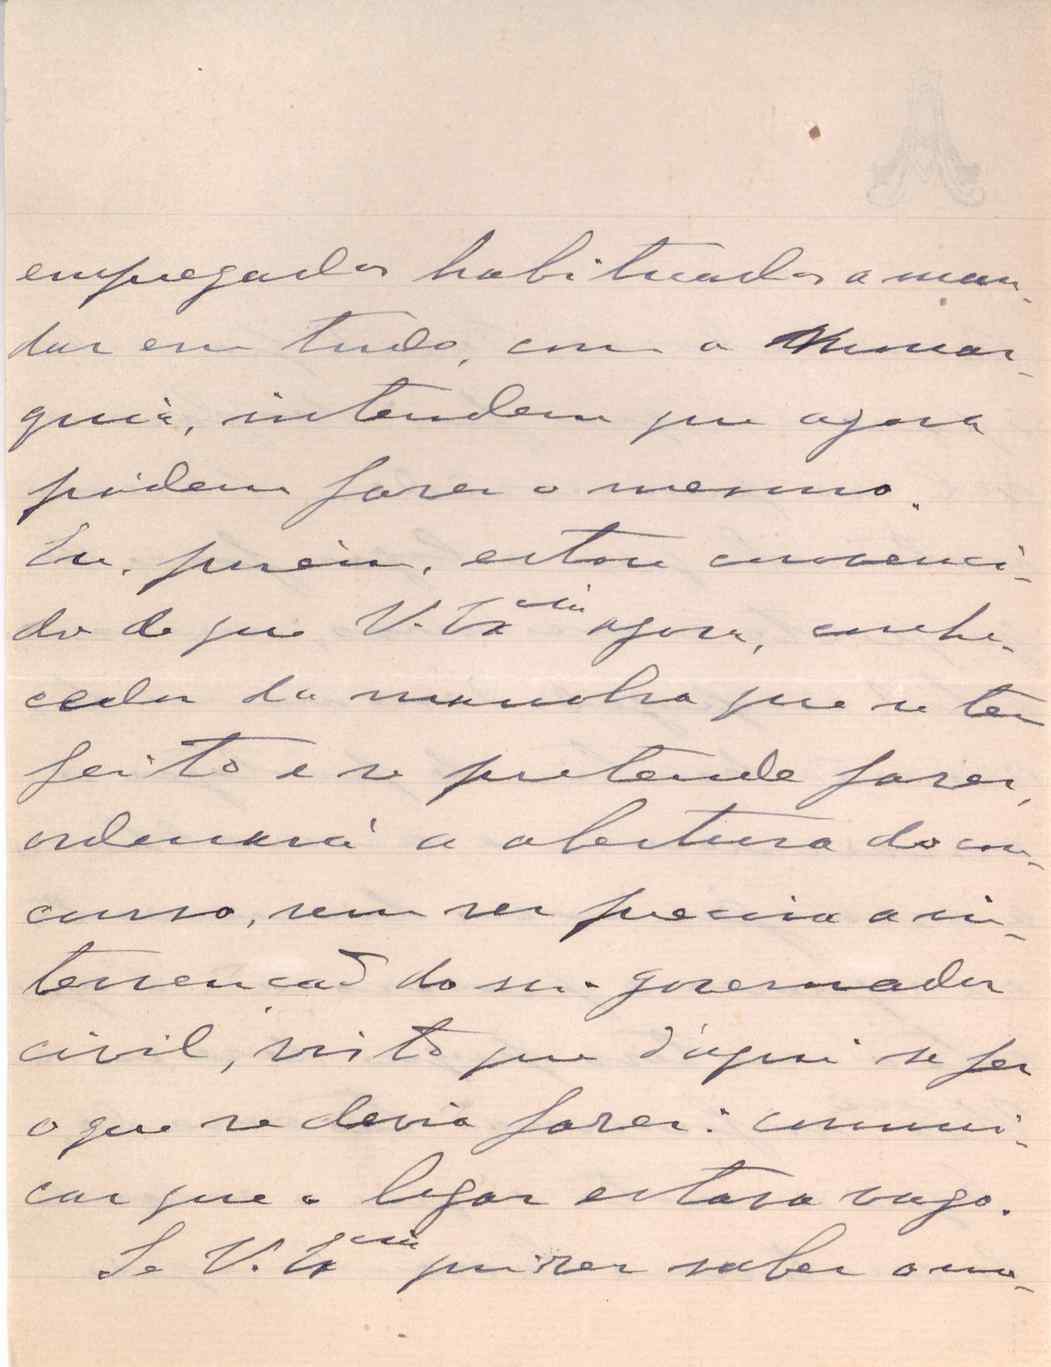 empregados habituados a man-
dar em tudo, com a monar-
quia, intendem que agora
pódem fazer o mesmo.
Eu, porém, estou convenci-
do de que V. Ex.cia agora, conhe-
cedor da manobra que se tem
feito e se pretende fazer,
ordenará a abertura do con-
curso, sem ser precisa a in-
tervenção do snr. governador
civil, visto que d'aqui se fez
o que se devia fazer: communi-
car que o logar estava vago.
Se V. Ex.cia quizer saber o mo-